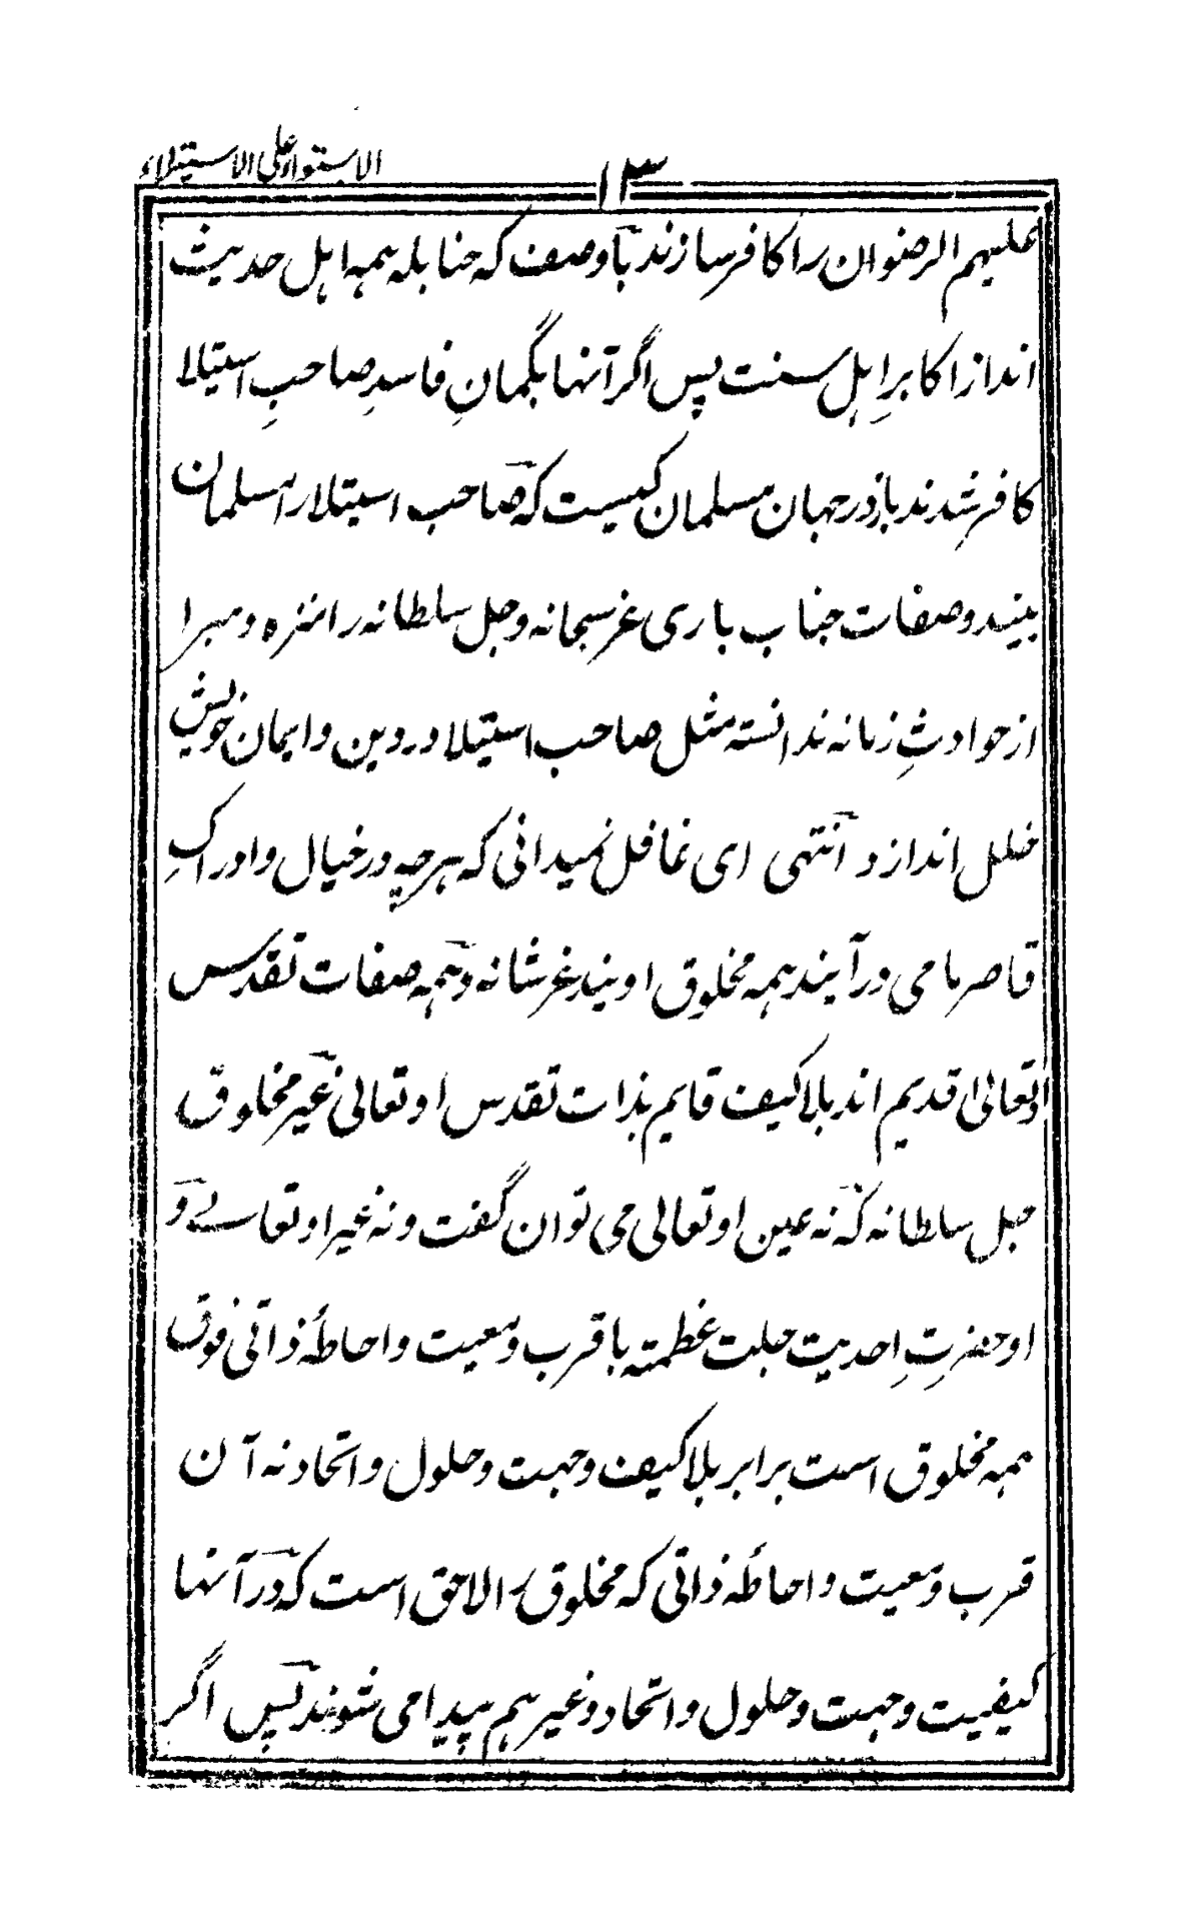 الاستواء علی الاستیلاء
۱۳
علیهم الرضوان را کافر سازند باوصف که حنابله همه اهل حدیث
انداز اکابرِ اهل سنت پس اگر آنها بگمانِ فاسدِ صاحبِ استیلا
کافر شدند باز در جهان مسلمان کیست که صاحب استیلا را مسلمان
بیند و صفات جناب باری عز سبحانه و جل سلطانه را منزه و مبرا
از حوادثِ زمانه ندانسته مثل صاحب استیلا در دین و ایمان خویش
خلل اندازد انتهی ای غافل نمیدانی که هرچه در خیال و ادراکِ
قاصر ما می در آیند همه مخلوق اویند عز شانه و همه صفات تقدس
اوتعالیٰ قدیم اند بلاکیف قایم بذات تقدس اوتعالی غیر مخلوق
جل سلطانه که نه عین اوتعالی می توان گفت و نه غیر اوتعالے و
او حضرتِ احدیتِ جلت عظمته با قرب و معیت و احاطۀ ذاتی فوق
همه مخلوق است برابر بلاکیف و جهت و حلول و اتحاد نه آن
قرب و معیت و احاطۀ ذاتی که مخلوق را لاحق است که در آنها
کیفیت و جهت و حلول و اتحاد و غیرهم پیدا می شوند پس اگر